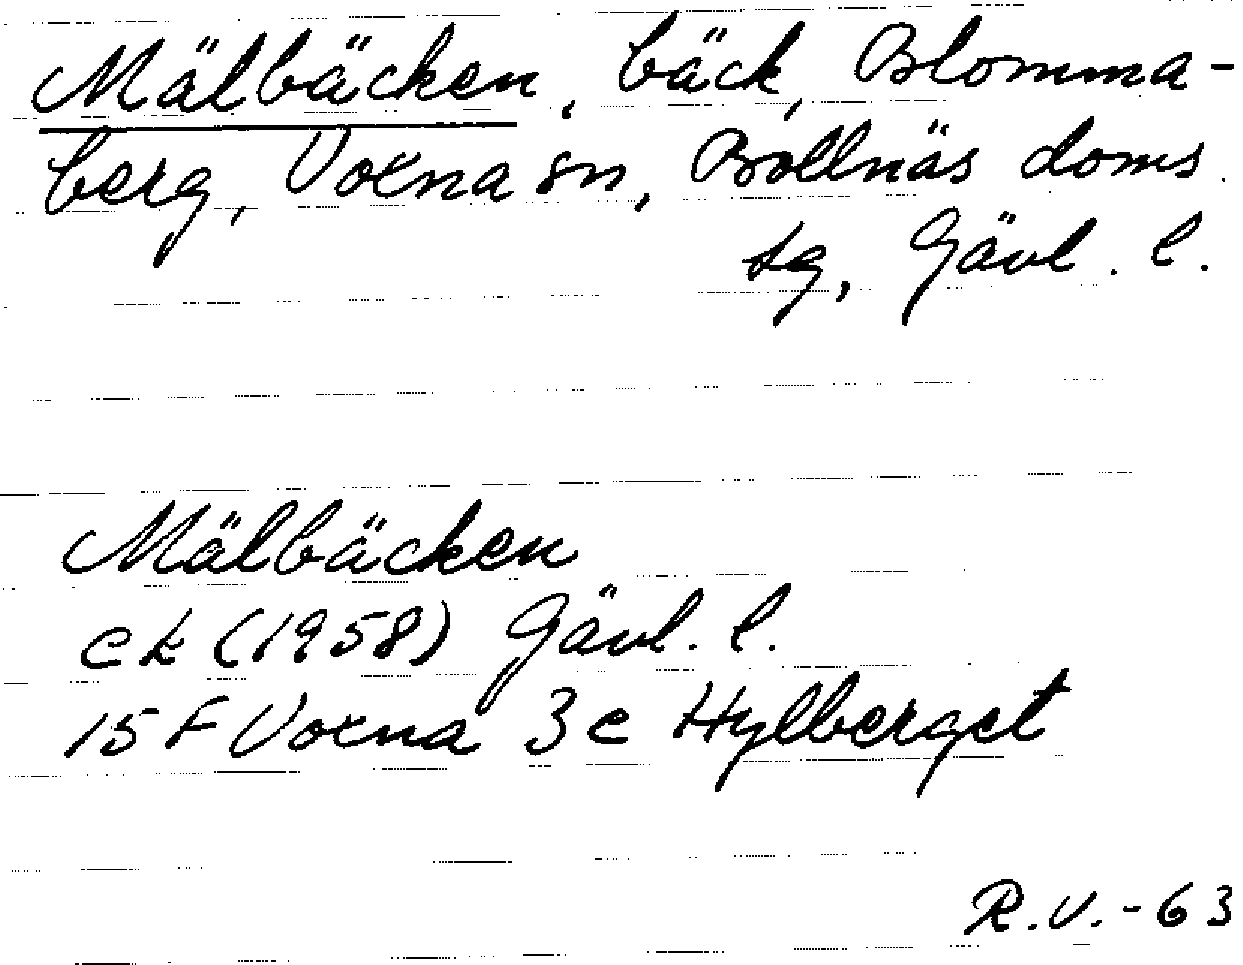 Mälbäcken, bäck, Blomma-
berg, Voxna sn, Bollnäs doms.
sg, Gävl. l.
Mälbäcken
ek (1958) Gävl. l.
15 F Voxna 3e Hylberget
R.V.-63